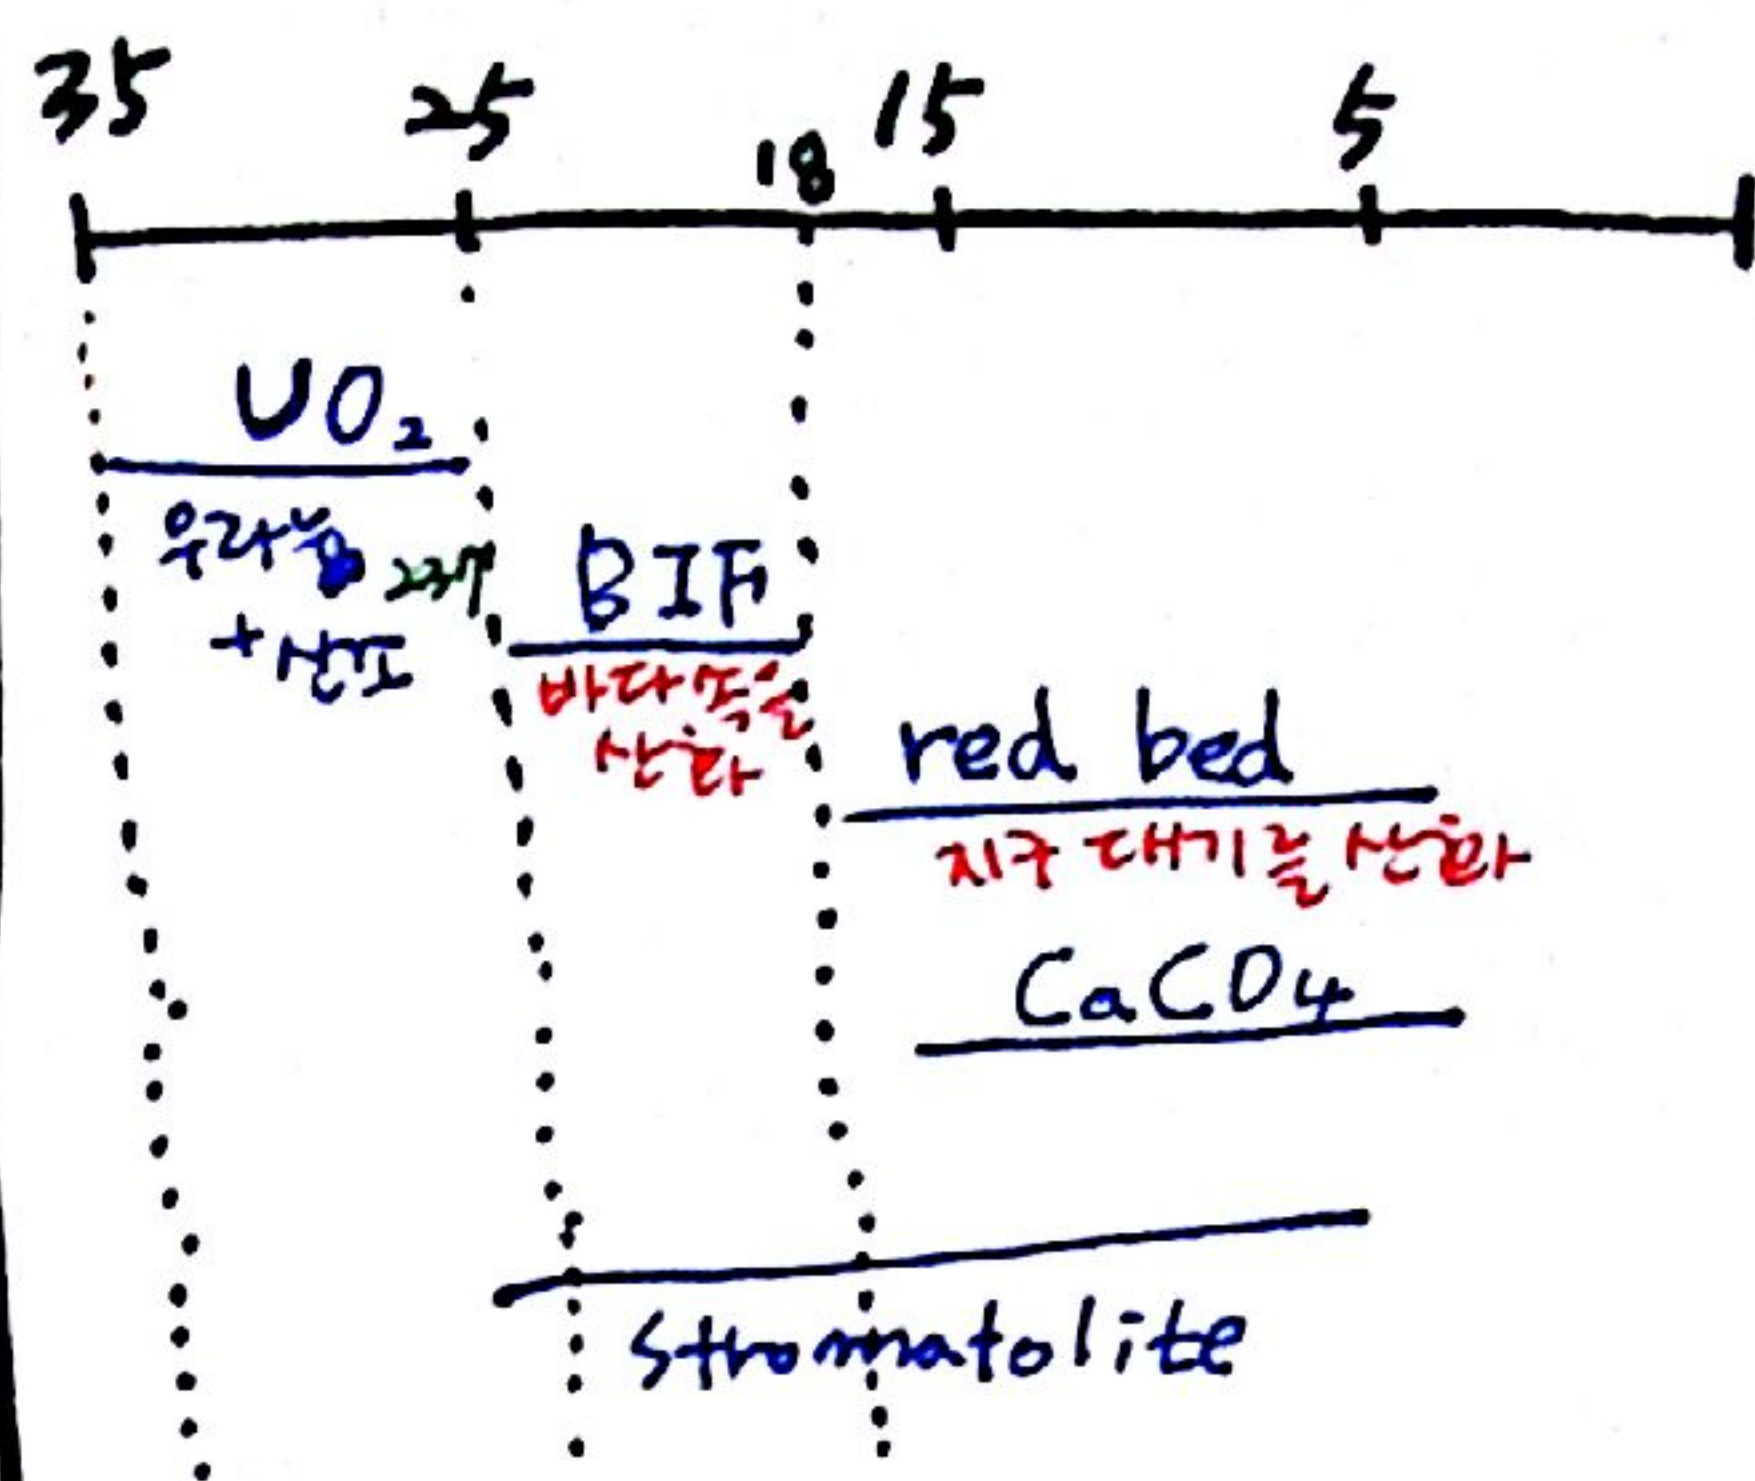 35 25 18 15 5
UO₂
우라늄
+산포
237
BIF
바다 속을
산화
red bed
지구 대기를 산화
CaCO4
Stromatolite